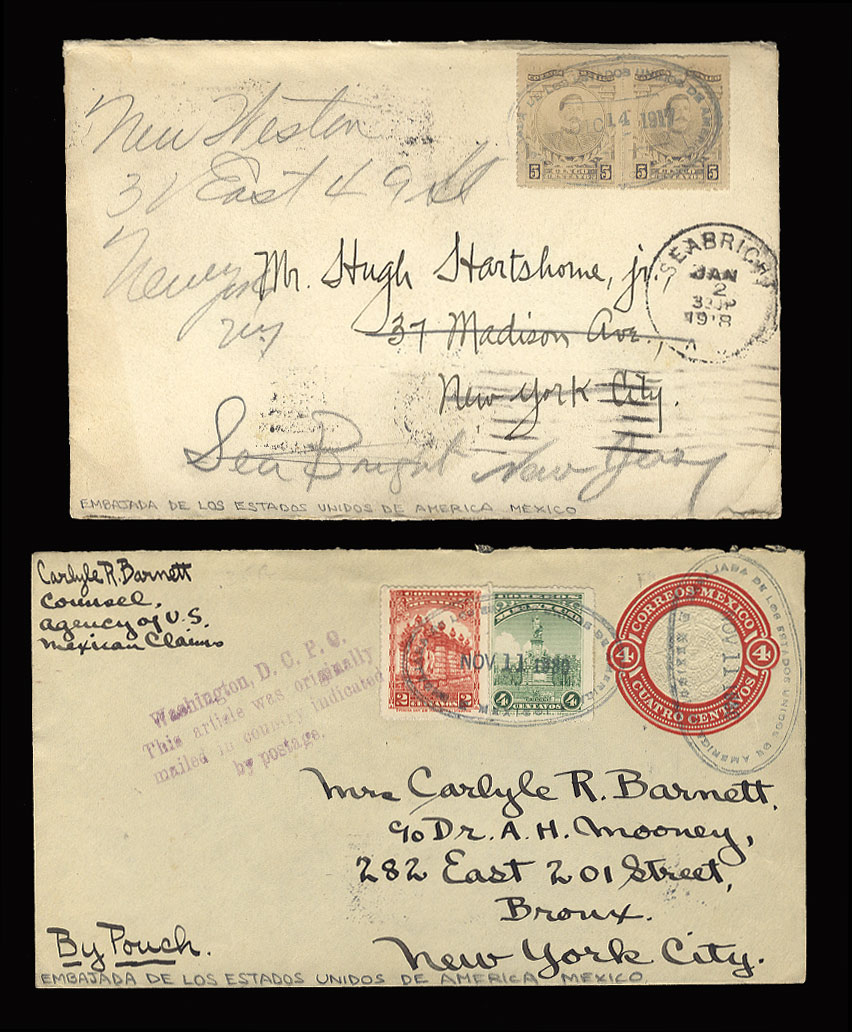 New Weston
31 East 49 St
New York
NY
5 5
14 1917
SEABRIGHT
JAN
2
1918
Mr. Hugh Hartshorne, jr.,
37 Madison Ave.,
New York City.
Sea Bright New Jersey
EMBAJADA DE LOS ESTADOS UNIDOS DE AMERICA MEXICO
Carlyle R. Barnett
Counsel,
agency of U.S.
Mexican Claims
Washington, D. C. P. O.
This article was originally
mailed in country indicated
by postage.
2 2
4 CENTAVOS 4
NOV 11
CORREOS MEXICO
4 4
CUATRO CENTAVOS
JADA DE LOS ESTADOS UNIDOS DE AMERICA
NOV 11
Mrs Carlyle R. Barnett,
c/o Dr. A. H. Mooney,
282 East 201 Street,
Bronx.
New York City.
By Pouch.
EMBAJADA DE LOS ESTADOS UNIDOS DE AMERICA MEXICO